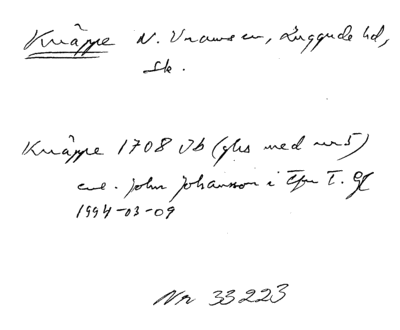 Knäppe N. Vram sn, Luggude hd,
Sk.
Knäppe 1708 Jb (ghs med nr 5)
enl. John Johansson i
1994-03-09
Nr 33223